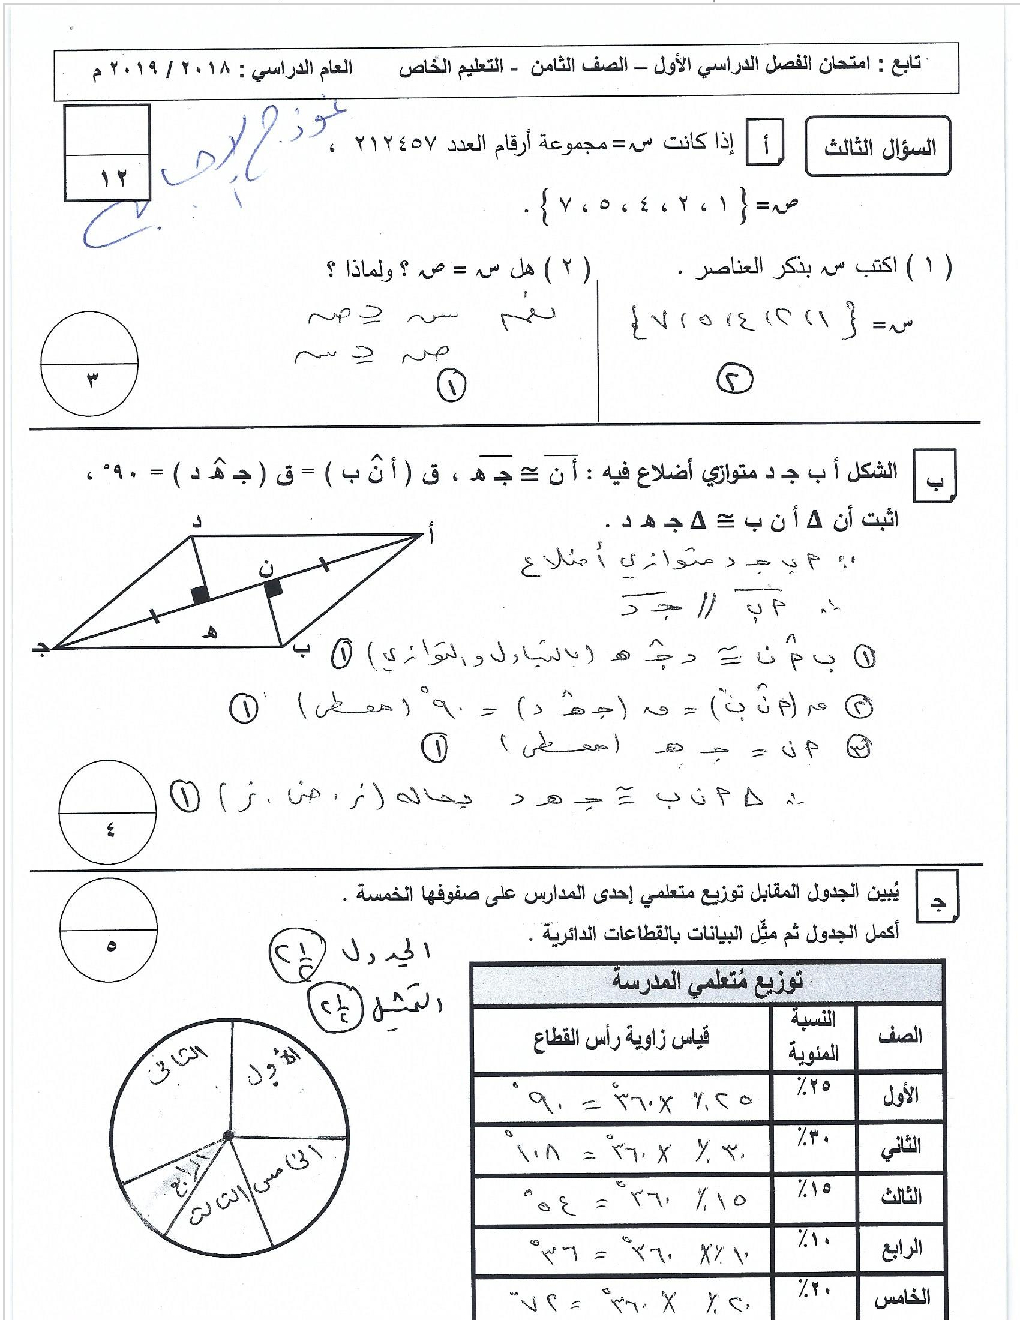 تابع : امتحان الفصل الدراسي الأول – الصف الثامن - التعليم الخاص العام الدراسي : ٢٠١٨ / ٢٠١٩ م
نموذج الإجابة
السؤال الثالث
أ إذا كانت س = مجموعة أرقام العدد ٢١٢٤٥٧ ،
١٢
ص = { ١ ، ٢ ، ٤ ، ٥ ، ٧ } .
( ١ ) اكتب س بذكر العناصر .
س = { ١ ، ٢ ، ٤ ، ٥ ، ٧ }
٢
( ٢ ) هل س = ص ؟ ولماذا ؟
نعم س ⊆ ص
ص ⊆ س
١
٣
ب الشكل أ ب ج د متوازي أضلاع فيه : أ ن ≅ ج هـ ، ق ( أ ن̂ ب ) = ق ( ج هـ̂ د ) = ٩٠° ،
اثبت أن Δ أ ن ب ≅ Δ ج هـ د .
د
أ
ن
هـ
ب
جـ
∵ أ ب جـ د متوازي أضلاع
∴ أ ب // جـ د
١ ب أ̂ ن ≅ د جـ̂ هـ (بالتبادل والتوازي) ١
٢ ق (أ ن̂ ب) = ق (جـ هـ̂ د) = ٩٠° (معطى) ١
٣ أ ن = جـ هـ (معطى) ١
∴ Δ أ ن ب ≅ جـ هـ د بحالة (ز ، ض ، ز) ١
٤
ج يُبين الجدول المقابل توزيع متعلمي إحدى المدارس على صفوفها الخمسة .
أكمل الجدول ثم مثّل البيانات بالقطاعات الدائرية .
٥
الجدول ٢ ١/٢
التمثيل ٢ ١/٢
توزيع مُتعلمي المدرسة
الصف النسبة المئوية قياس زاوية رأس القطاع
الأول ٢٥٪ ٢٥٪ × ٣٦٠° = ٩٠°
الثاني ٣٠٪ ٣٠٪ × ٣٦٠° = ١٠٨°
الثالث ١٥٪ ١٥٪ × ٣٦٠° = ٥٤°
الرابع ١٠٪ ١٠٪ × ٣٦٠° = ٣٦°
الخامس ٢٠٪ ٢٠٪ × ٣٦٠° = ٧٢°
الأول
الثاني
الرابع
الثالث
الخامس